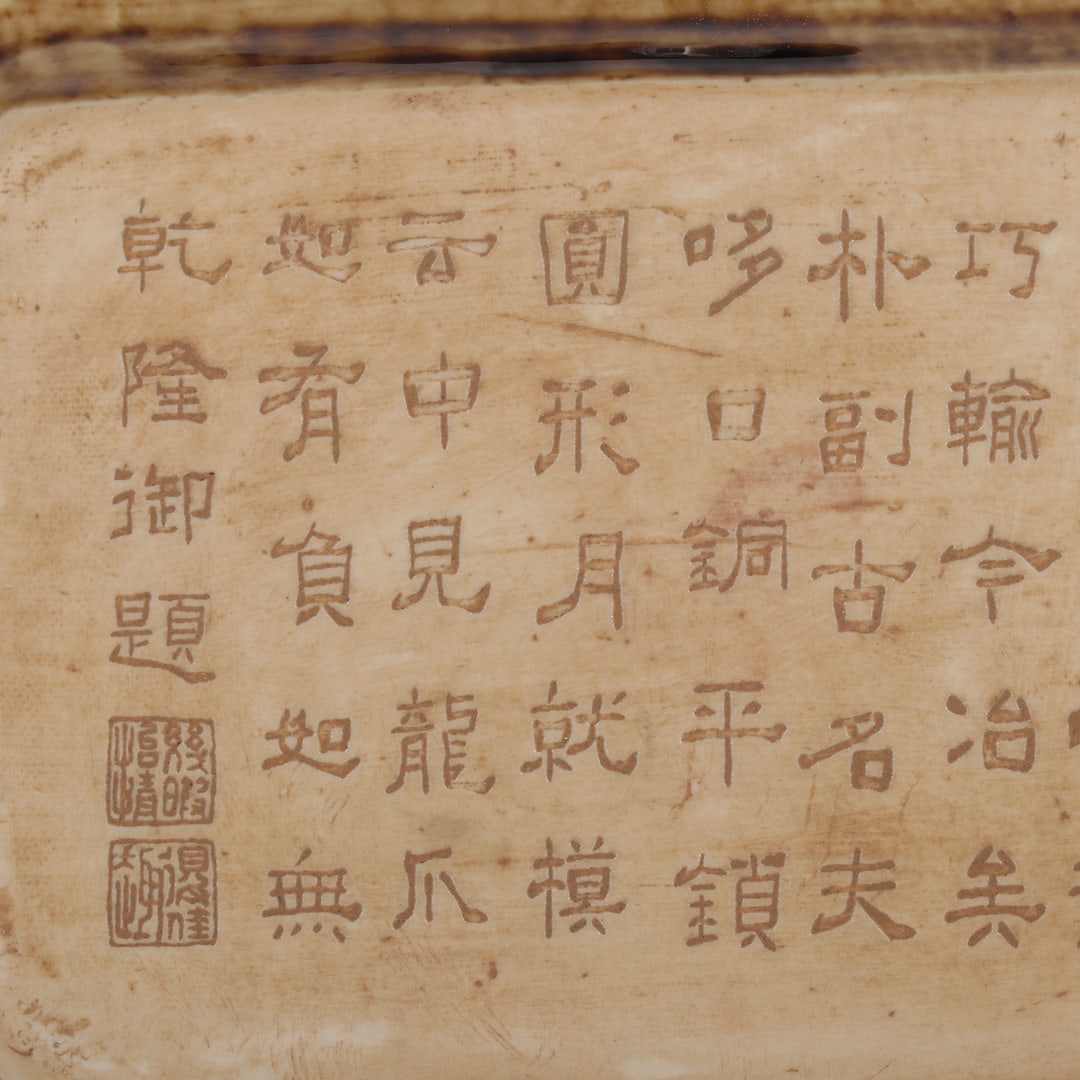 巧輸今冶矣
朴副古名夫
哆口銅平鎖
圓形月就模
云申見龍爪
如有負如無
乾隆御題
幾暇怡情
得佳趣